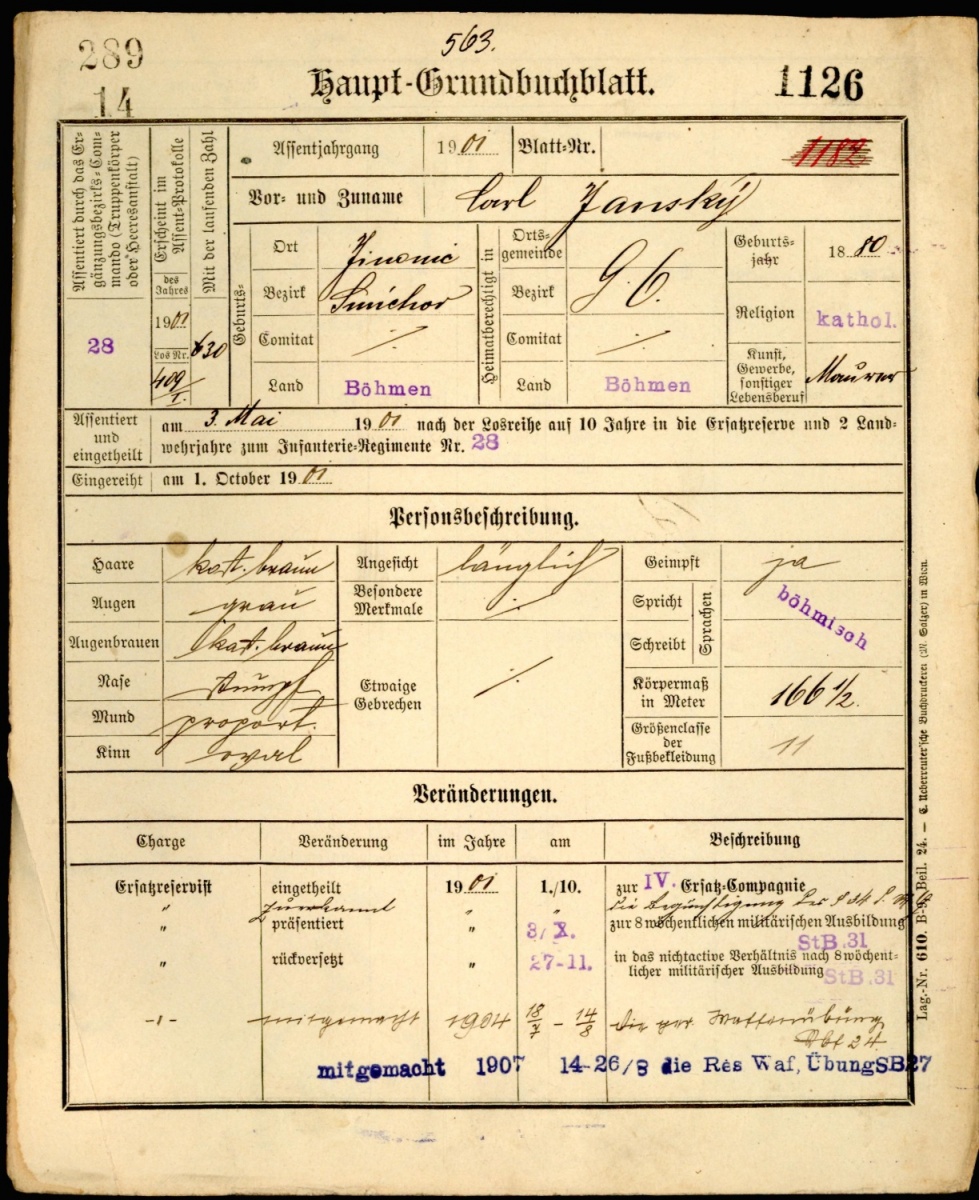 289
563.
Haupt-Grundbuchblatt.
1126
14
Assentiert durch das Ergänzungsbezirks-Commando (Truppenkörper oder Heeresanstalt)
28
Erscheint im Assent-Protokolle
des Jahres
1901
Los Nr.
409/I.
Mit der laufenden Zahl
630
Assentjahrgang 1901 Blatt-Nr. 1182
Vor- und Zuname Carl Janský
Geburts-
Ort Jinonic
Bezirk Smichov
Comitat ./.
Land Böhmen
Heimatberechtigt in
Ortsgemeinde
Bezirk G. O.
Comitat ./.
Land Böhmen
Geburtsjahr 1880
Religion kathol.
Kunst, Gewerbe, sonstiger Lebensberuf Maurer
Assentiert und eingetheilt
am 3. Mai 1901 nach der Losreihe auf 10 Jahre in die Ersatzreserve und 2 Land-
wehrjahre zum Infanterie-Regimente Nr. 28
Eingereiht am 1. October 1901
Personsbeschreibung.
Haare kast. braun
Augen grau
Augenbrauen kast. braun
Nase stumpf
Mund proport.
Kinn oval
Angesicht länglich
Besondere Merkmale ./.
Etwaige Gebrechen ./.
Geimpft ja
Spricht
Schreibt
Sprachen
böhmisch
Körpermaß in Meter 166 1/2.
Größenclasse der Fußbekleidung 11
Veränderungen.
Charge Veränderung im Jahre am Beschreibung
Ersatzreservist eingetheilt 1901 1./10. zur IV. Ersatz-Compagnie
" zuerkannt " " die Begünstigung des § 34
" präsentiert " 3/X. zur 8 wöchentlichen militärischen Ausbildung
StB.31
" rückversetzt " 27-11. in das nichtactive Verhältnis nach 8 wöchent-
licher militärischer Ausbildung StB.31
-"- mitgemacht 1904 18/7 – 14/8 die Waffenübung
24
mitgemacht 1907 14-26/8 die Res Waf, Übung SB27
Lag.-Nr. 610. B-9. Beil. 24. — C. Ueberreuter'sche Buchdruckerei (M. Salzer) in Wien.